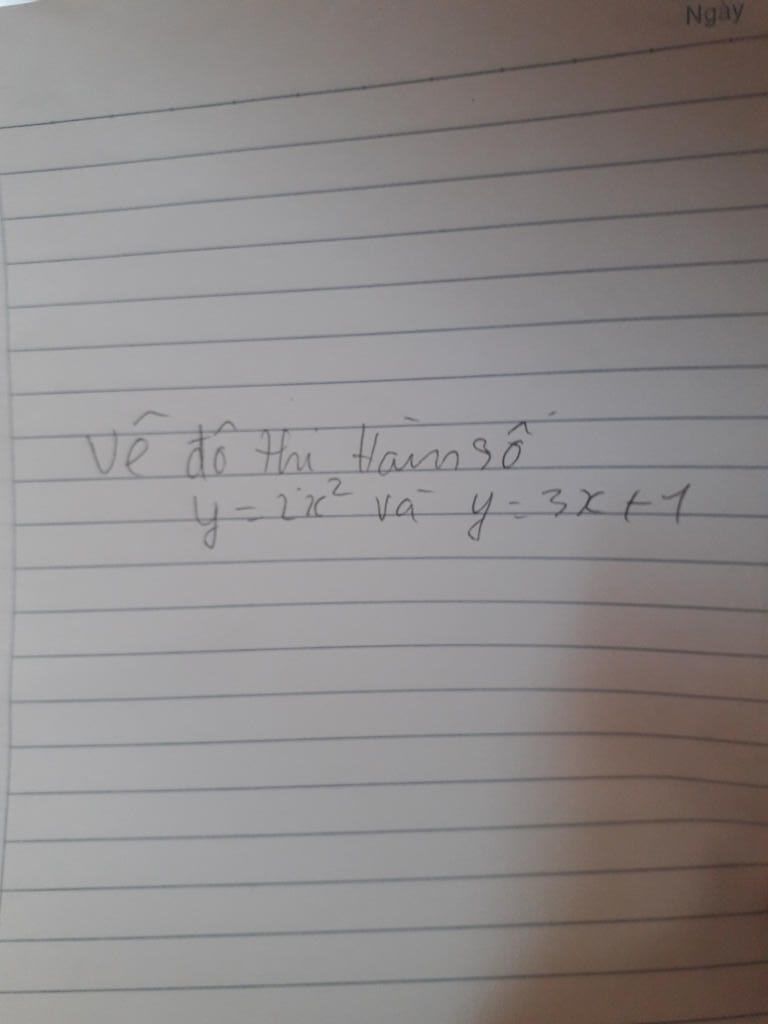 Ngày
Vẽ đồ thị Hàm số
y = 2x² và y = 3x + 1